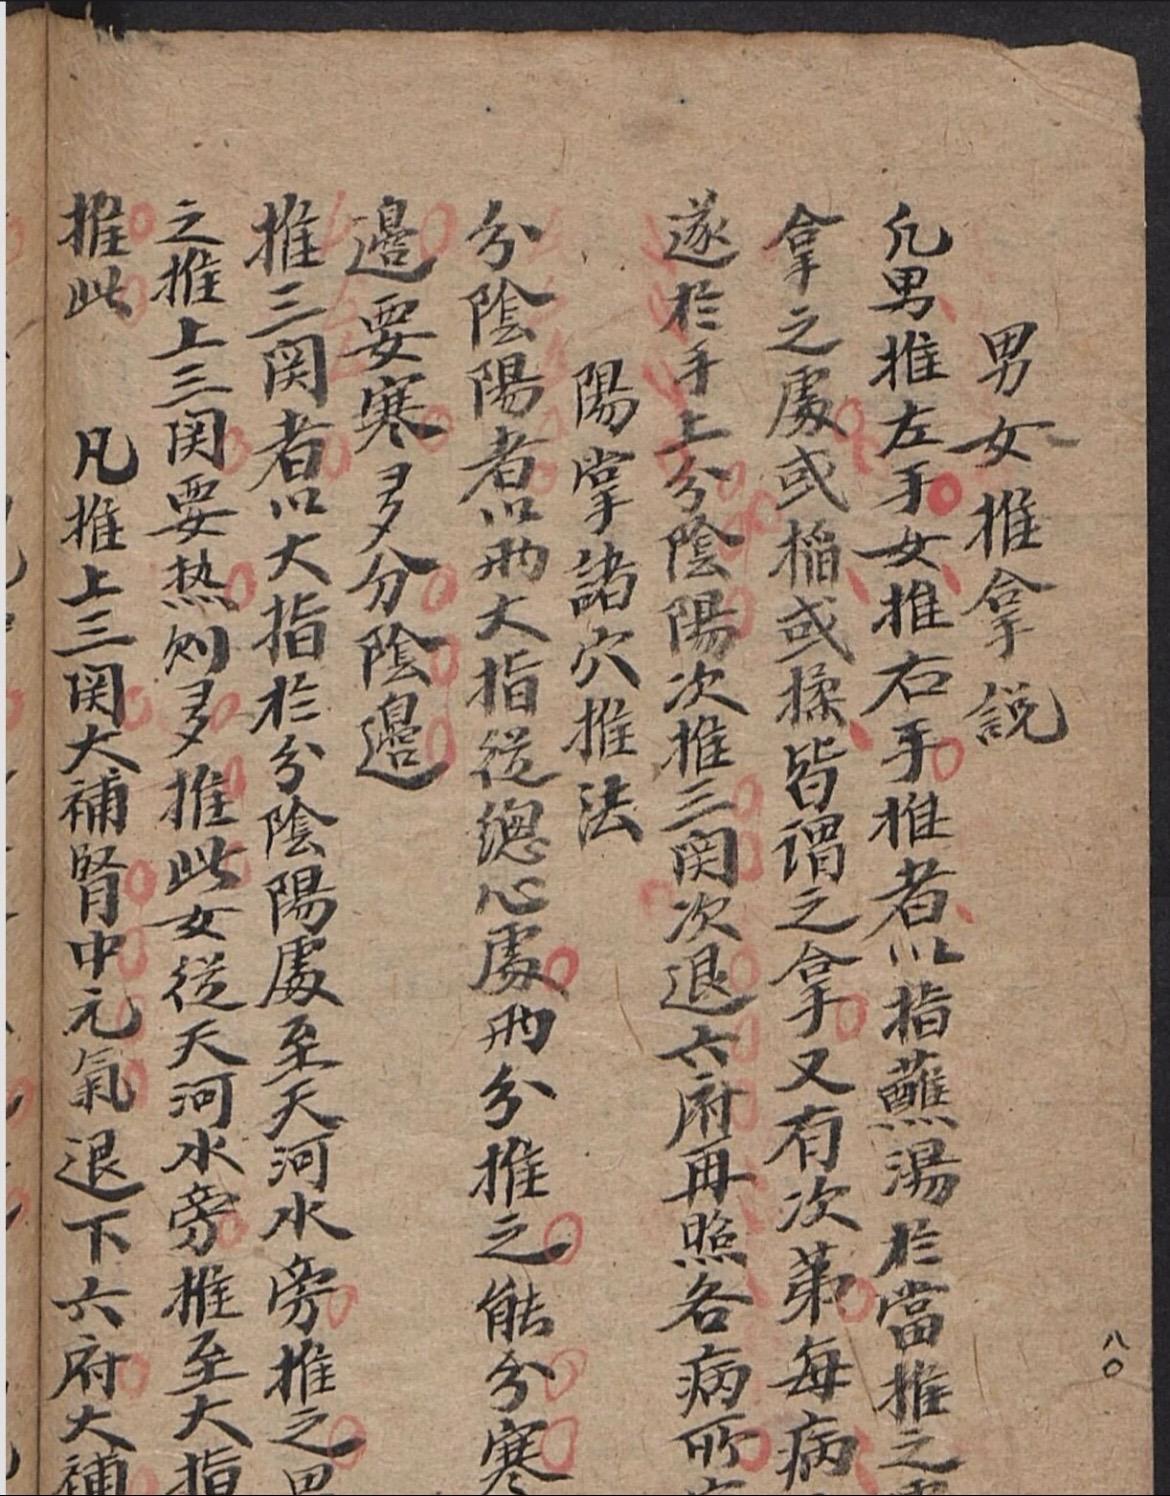 男女推拿説
凡男推左手女推右手推者以指蘸湯於當推之
拿之處或稲或揉皆謂之拿又有次第每病
遂於手上分陰陽次推三関次退六府再照各病所
陽掌諸穴推法
分陰陽者以両大指從總心處両分推之能分寒
邉要寒多分陰邉
推三関者以大指於分陰陽處至天河水旁推之男
之推上三関要热则多推此女從天河水旁推至大指
推此　凡推上三関大補腎中元氣退下六府大補
八〇